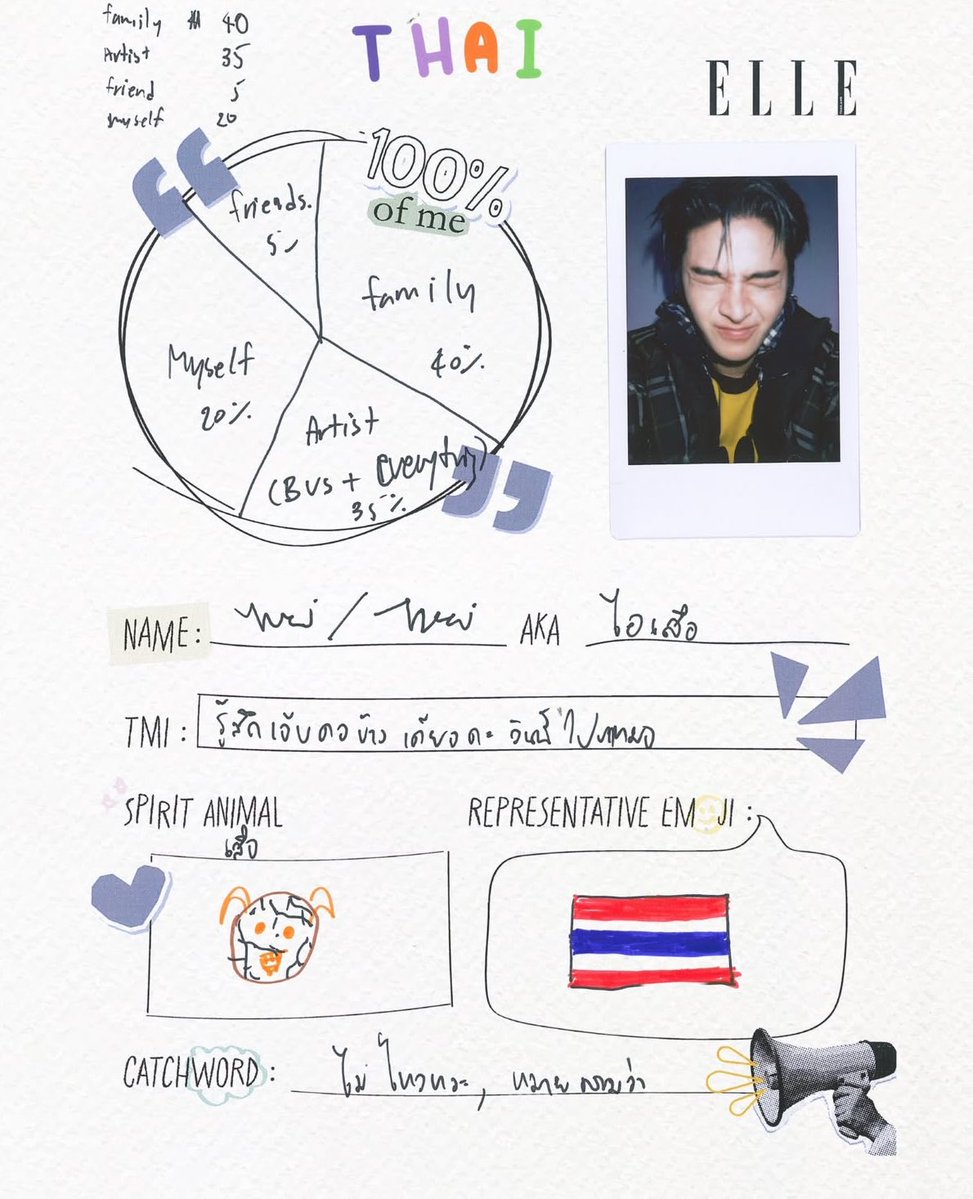 family 40
Artist 35
friend 5
myself 20
THAI
ELLE
100%
of me
friends.
5%
family
40%
Myself
20%
Artist
(BUS + Everything)
35%
NAME: / AKA ไอเสือ
TMI : รู้สึกเจ็บคอข้างเดียวคะ วันนี้ไปหาหมอ
SPIRIT ANIMAL
เสือ
REPRESENTATIVE EMOJI :
CATCHWORD : ไม่ไหวหวะ, หมายความว่า